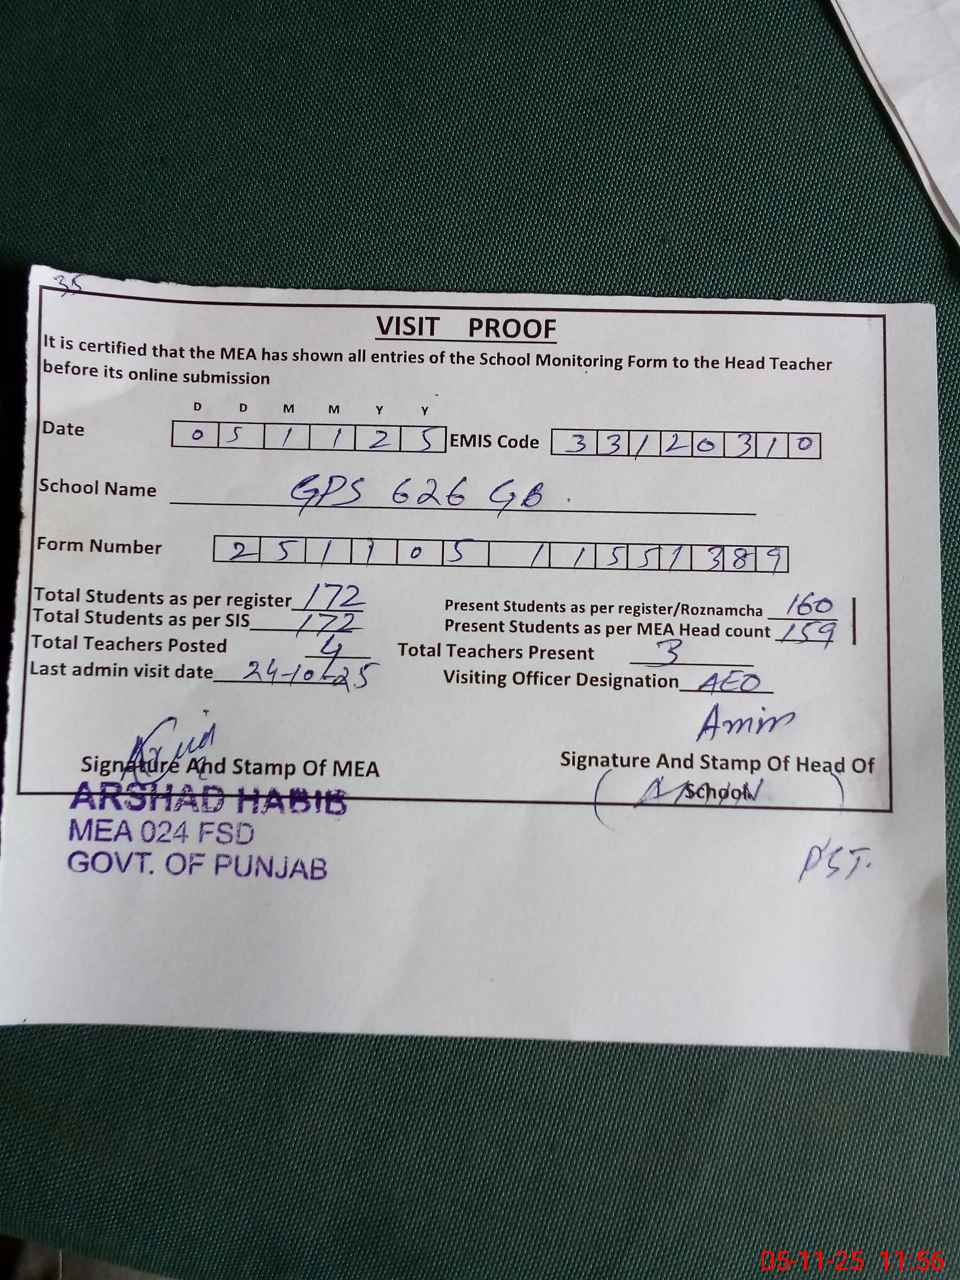 35
VISIT PROOF
It is certified that the MEA has shown all entries of the School Monitoring Form to the Head Teacher
before its online submission
D D M M Y Y
Date 0 5 1 1 2 5 EMIS Code 3 3 1 2 0 3 1 0
School Name GPS 626 GB.
Form Number 2 5 1 1 0 5 1 1 5 5 1 3 8 9
Total Students as per register 172 Present Students as per register/Roznamcha 160
Total Students as per SIS 172 Present Students as per MEA Head count 159
Total Teachers Posted 4 Total Teachers Present 3
Last admin visit date 24-10-25 Visiting Officer Designation AEO
Amin
Signature And Stamp Of MEA Signature And Stamp Of Head Of
School
ARSHAD HABIB
MEA 024 FSD
GOVT. OF PUNJAB
PST.
05-11-25 11:56